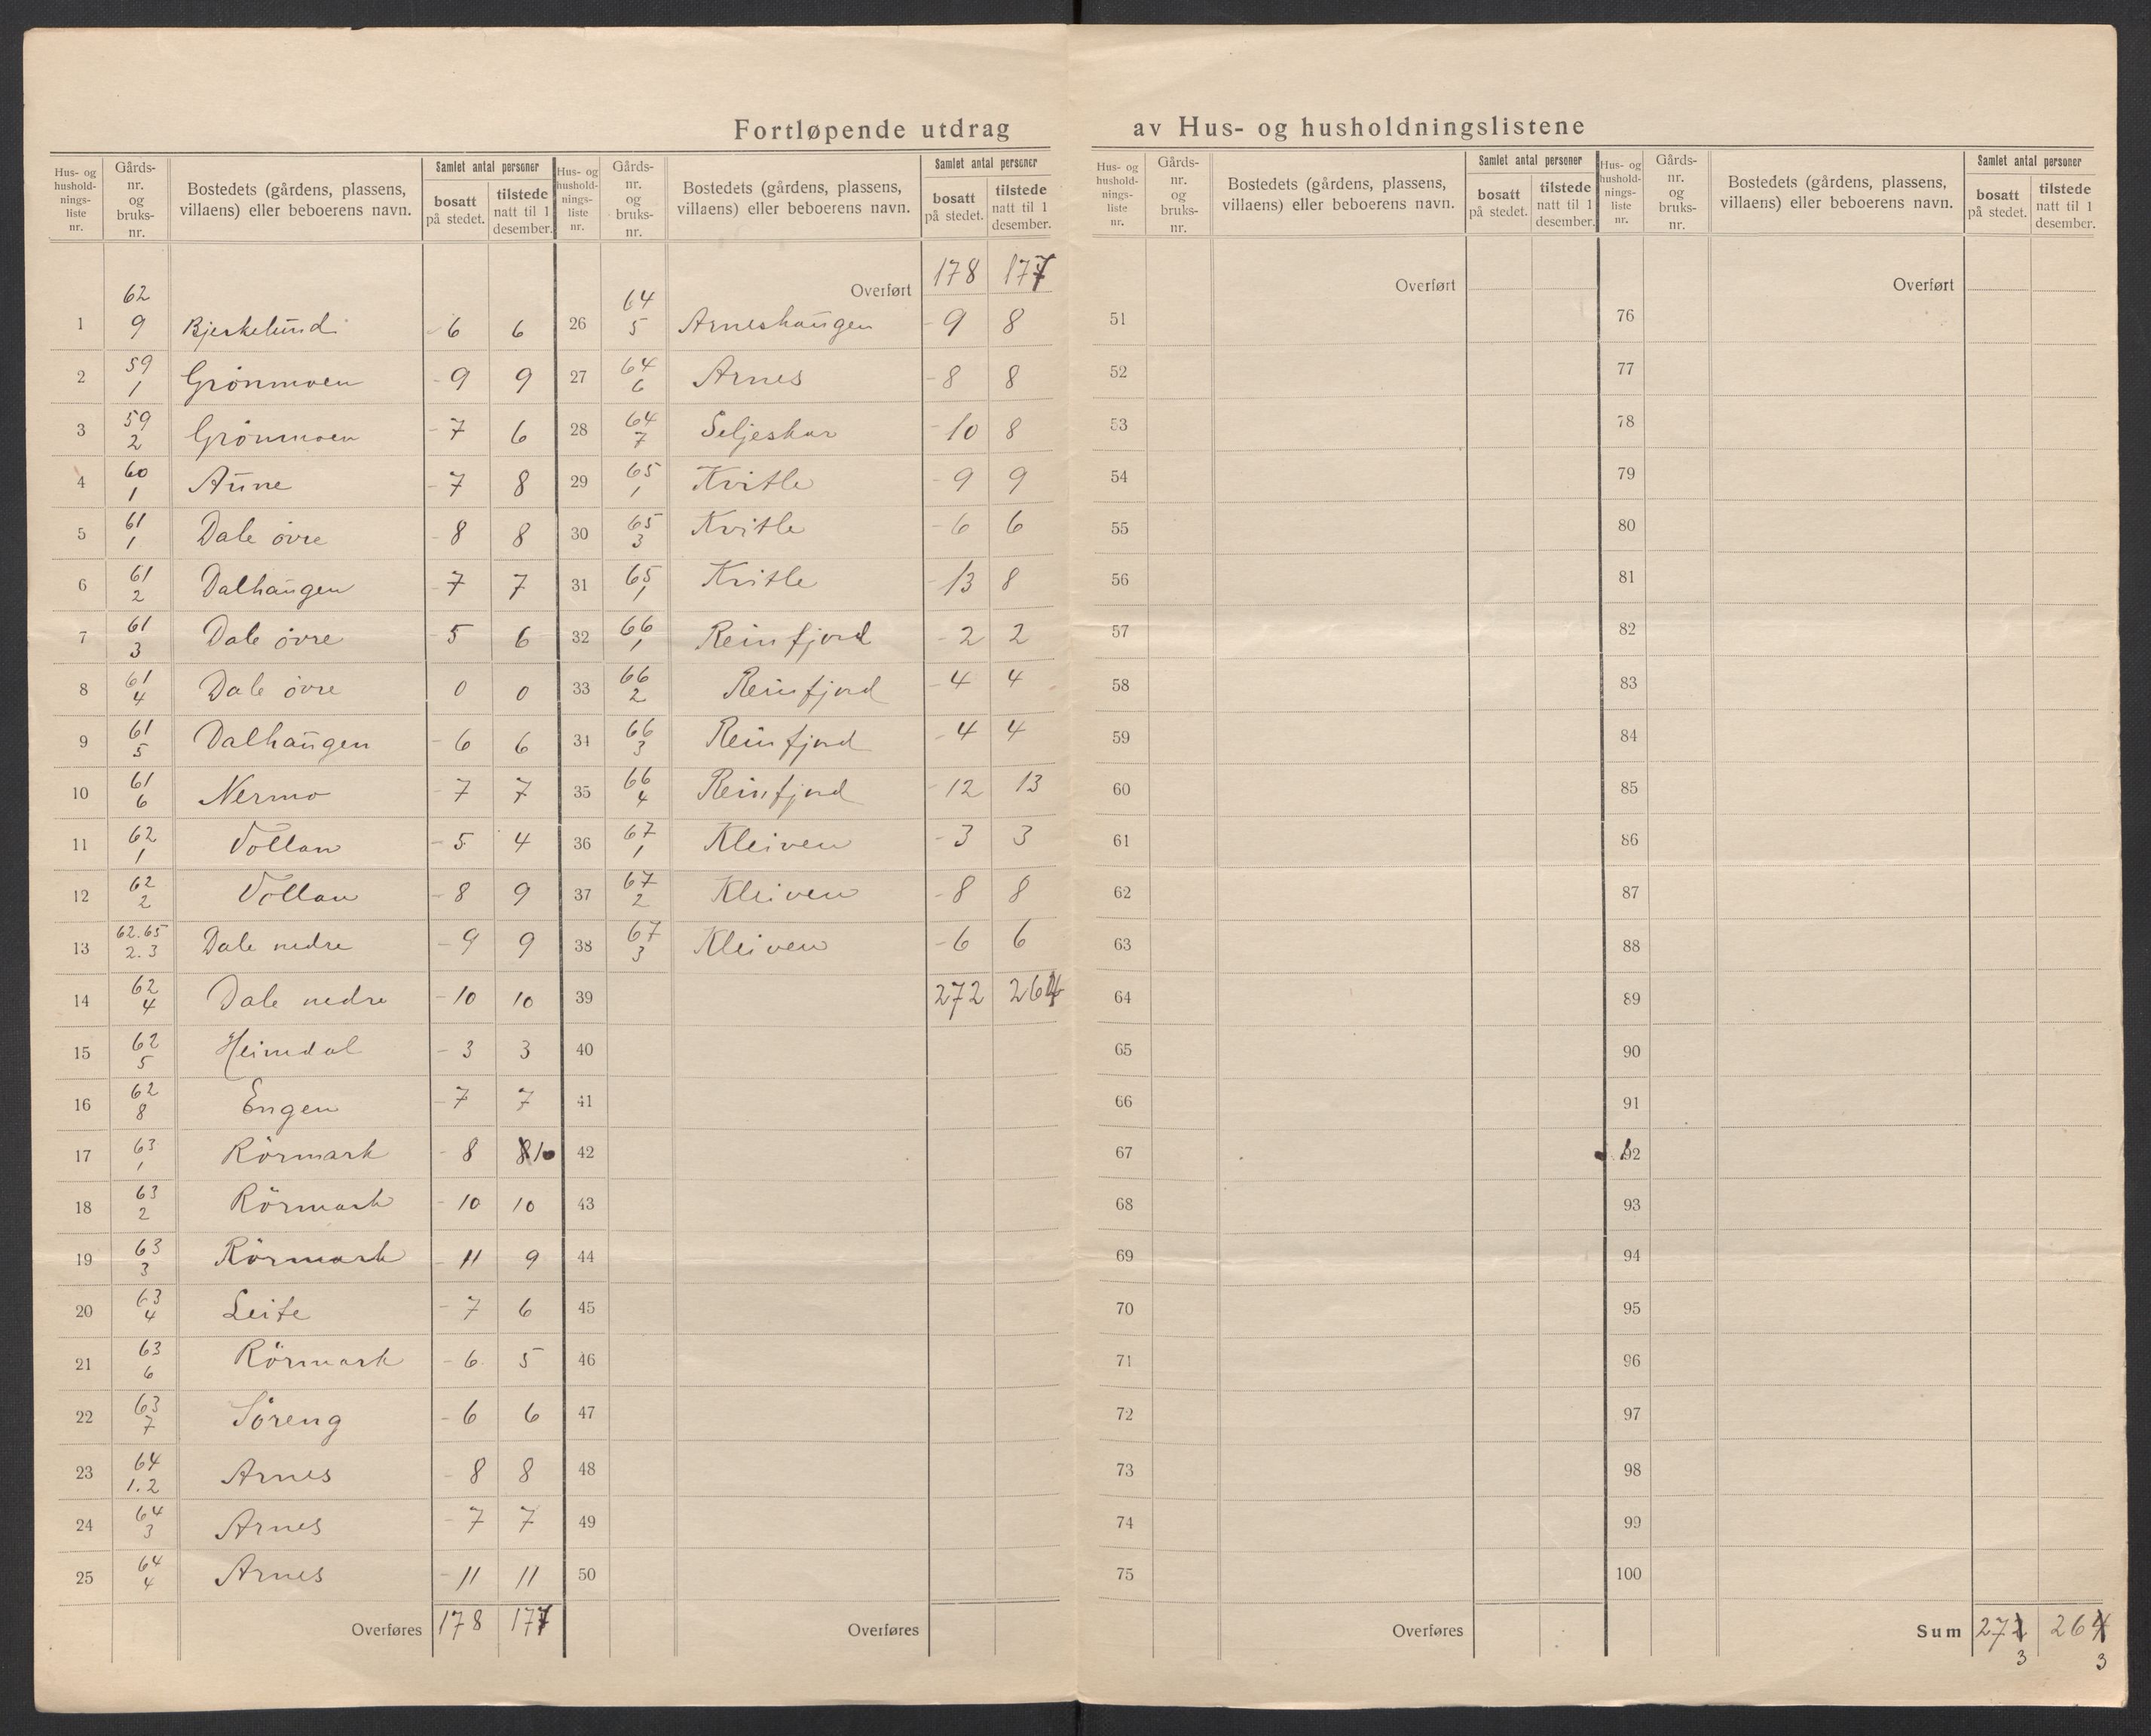 Fortløpende utdrag av Hus- og husholdningslistene
Hus- og hushold-nings-liste nr. | Gårds-nr. og bruks-nr. | Bostedets (gårdens, plassens, villaens) eller beboerens navn. | Samlet antal personer bosatt på stedet. | tilstede natt til 1 desember.
1 | 62 9 | Bjerkelund | 6 | 6
2 | 59 1 | Grönmoen | 9 | 9
3 | 59 2 | Grönmoen | 7 | 6
4 | 60 1 | Aune | 7 | 8
5 | 61 1 | Dale övre | 8 | 8
6 | 61 2 | Dalhaugen | 7 | 7
7 | 61 3 | Dale övre | 5 | 6
8 | 61 4 | Dale övre | 0 | 0
9 | 61 5 | Dalhaugen | 6 | 6
10 | 61 6 | Nermo | 7 | 7
11 | 62 1 | Vollan | 5 | 4
12 | 62 2 | Vollan | 8 | 9
13 | 62.65 2.3 | Dale nedre | 9 | 9
14 | 62 4 | Dale nedre | 10 | 10
15 | 62 5 | Heimdal | 3 | 3
16 | 62 8 | Engen | 7 | 7
17 | 63 1 | Rörmark | 8 | 8 10
18 | 63 2 | Rörmark | 10 | 10
19 | 63 3 | Rörmark | 11 | 9
20 | 63 4 | Leite | 7 | 6
21 | 63 6 | Rörmark | 6 | 5
22 | 63 7 | Söreng | 6 | 6
23 | 64 1.2 | Arnes | 8 | 8
24 | 64 3 | Arnes | 7 | 7
25 | 64 4 | Arnes | 11 | 11
Overføres | 178 | 177
Hus- og hushold-nings-liste nr. | Gårds-nr. og bruks-nr. | Bostedets (gårdens, plassens, villaens) eller beboerens navn. | Samlet antal personer bosatt på stedet. | tilstede natt til 1 desember.
Overført | 178 | 177
26 | 64 5 | Arneshaugen | 9 | 8
27 | 64 6 | Arnes | 8 | 8
28 | 64 7 | Seljeskar | 10 | 8
29 | 65 1 | Kvitle | 9 | 9
30 | 65 3 | Kvitle | 6 | 6
31 | 65 1 | Kvitle | 13 | 8
32 | 66 1 | Reinfjord | 2 | 2
33 | 66 2 | Reinfjord | 4 | 4
34 | 66 3 | Reinfjord | 4 | 4
35 | 66 4 | Reinfjord | 12 | 13
36 | 67 1 | Kleiven | 3 | 3
37 | 67 2 | Kleiven | 8 | 8
38 | 67 3 | Kleiven | 6 | 6
39 | 272 | 264
40
41
42
43
44
45
46
47
48
49
50
Overføres
Hus- og hushold-nings-liste nr. | Gårds-nr. og bruks-nr. | Bostedets (gårdens, plassens, villaens) eller beboerens navn. | Samlet antal personer bosatt på stedet. | tilstede natt til 1 desember.
Overført
51
52
53
54
55
56
57
58
59
60
61
62
63
64
65
66
67
68
69
70
71
72
73
74
75
Overføres
Hus- og hushold-nings-liste nr. | Gårds-nr. og bruks-nr. | Bostedets (gårdens, plassens, villaens) eller beboerens navn. | Samlet antal personer bosatt på stedet. | tilstede natt til 1 desember.
Overført
76
77
78
79
80
81
82
83
84
85
86
87
88
89
90
91
92
93
94
95
96
97
98
99
100
Sum | 272 | 264
3 | 3